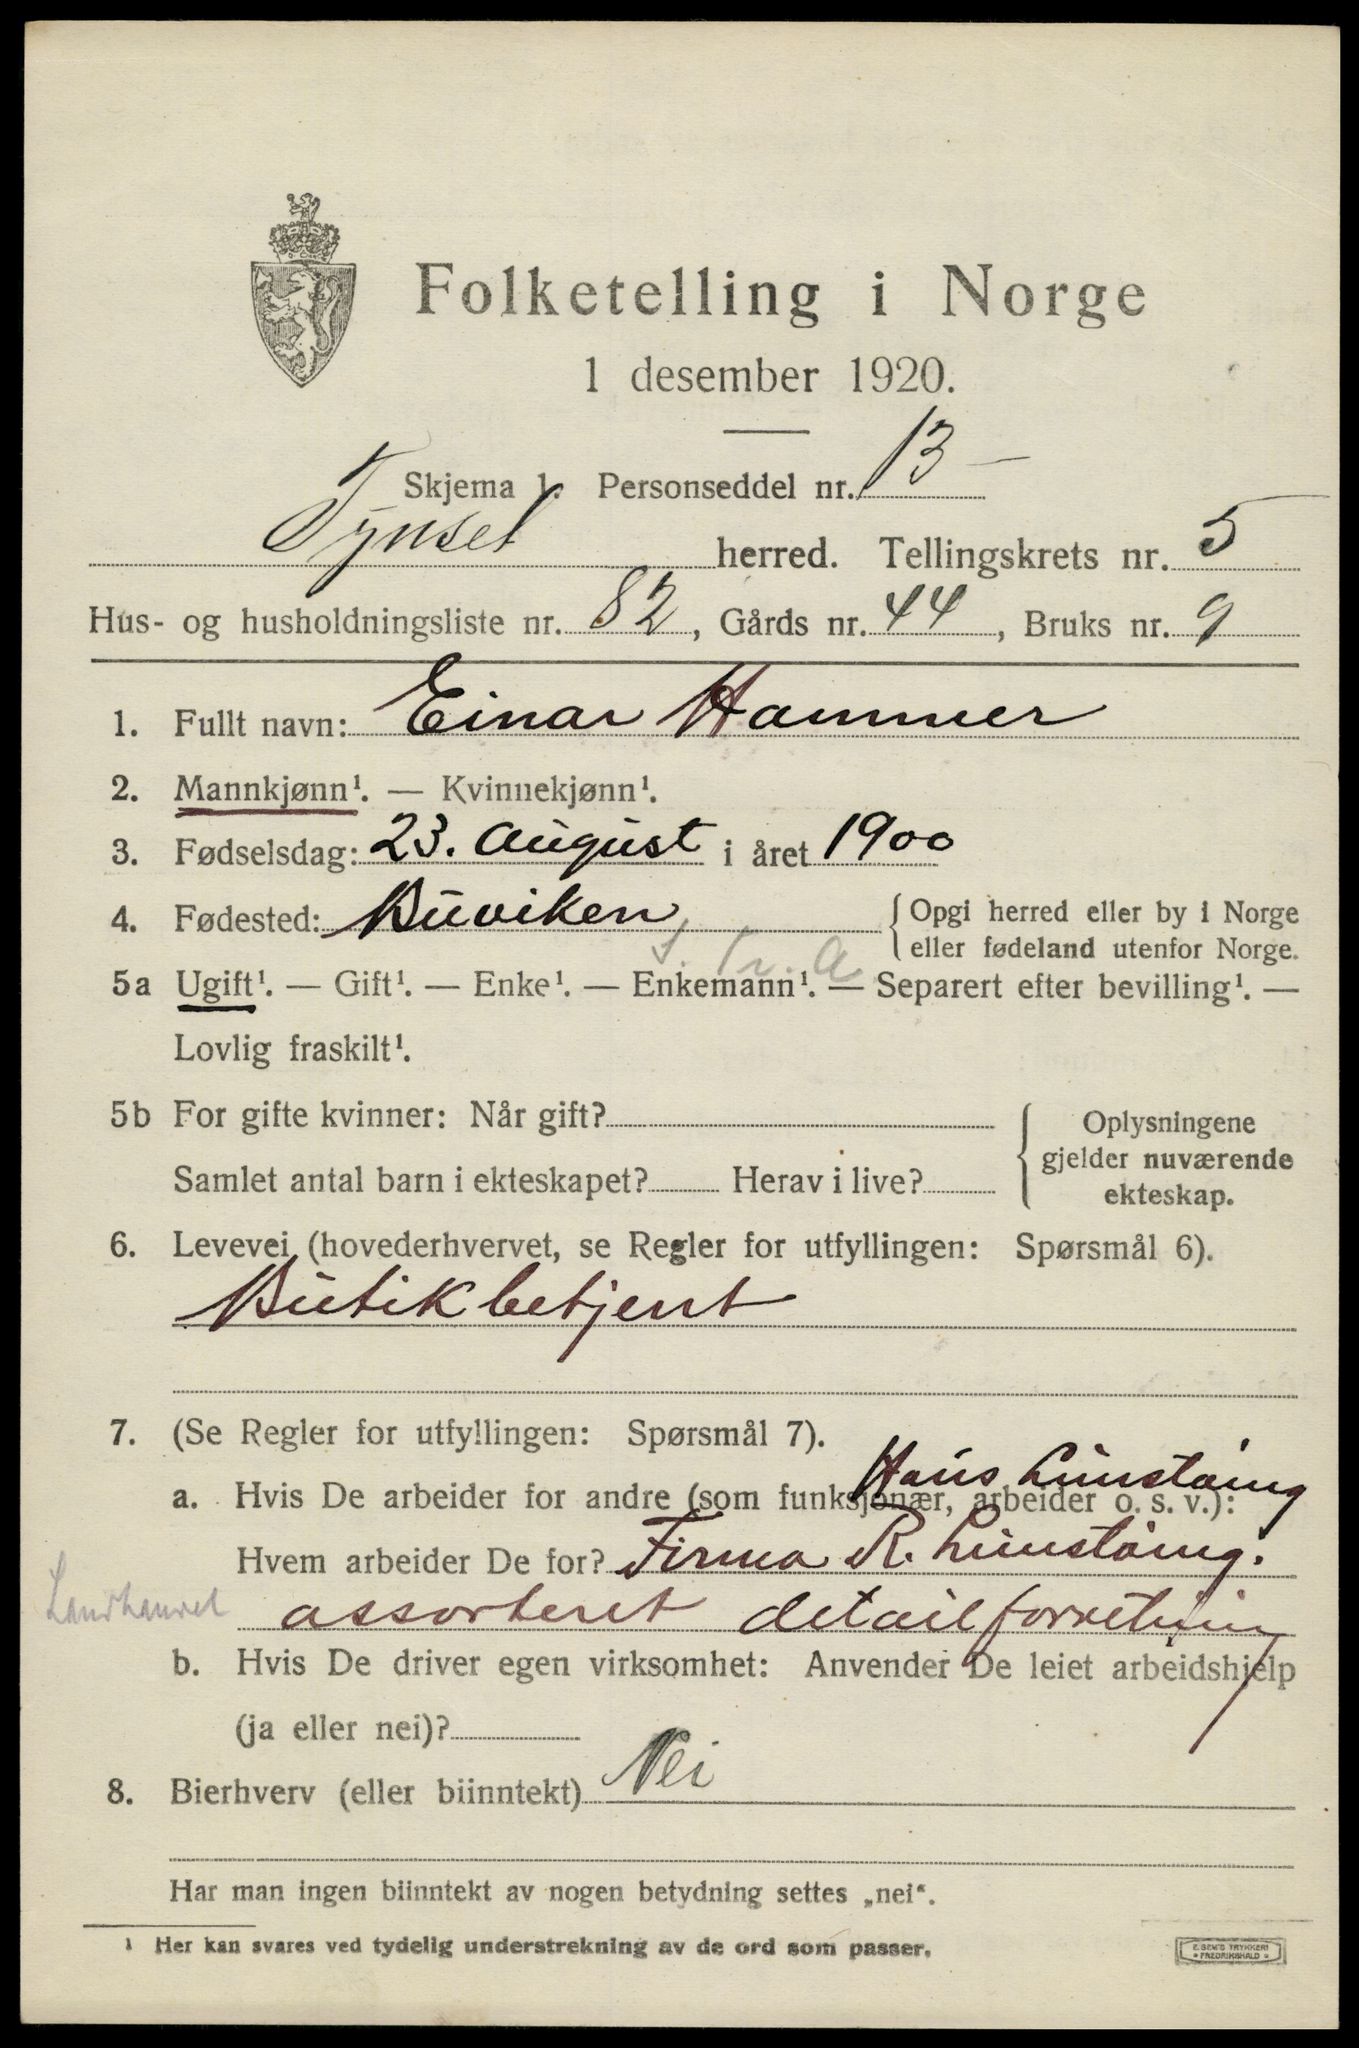 Folketelling i Norge
1 desember 1920.
Skjema 1. Personseddel nr. 13 –
Tynset herred. Tellingskrets nr. 5
Hus- og husholdningsliste nr. 82, Gårds nr. 44, Bruks nr. 9
1. Fullt navn: Einar Hammer
2. Mannkjønn¹. — Kvinnekjønn¹.
3. Fødselsdag: 23. august i året 1900
4. Fødested: Buviken {Opgi herred eller by i Norge
eller fødeland utenfor Norge.
S. Tr. a
5a Ugift¹. — Gift¹. — Enke¹. — Enkemann¹. — Separert efter bevilling¹. —
Lovlig fraskilt¹.
5b For gifte kvinner: Når gift? { Oplysningene
gjelder nuværende
Samlet antal barn i ekteskapet? Herav i live?
ekteskap.
6. Levevei (hovederhvervet, se Regler for utfyllingen: Spørsmål 6).
Butikbetjent
7. (Se Regler for utfyllingen: Spørsmål 7).
Hans Lunstäing
a. Hvis De arbeider for andre (som funksjonær, arbeider o. s. v.):
Hvem arbeider De for? Firma R. Lunstäing.
Landhandel assorteret detailforretning
b. Hvis De driver egen virksomhet: Anvender De leiet arbeidshjelp
(ja eller nei)?
8. Bierhverv (eller biinntekt) Nei
Har man ingen biinntekt av nogen betydning settes „nei“.
¹ Her kan svares ved tydelig understrekning av de ord som passer.
E. SEM'S TRYKKERI
* FREDRIKSHALD *